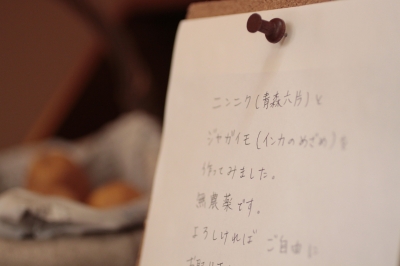 ニンニク(青森六片)と
ジャガイモ(インカのめざめ)を
作ってみました。
無農薬です。
よろしければ ご自由に